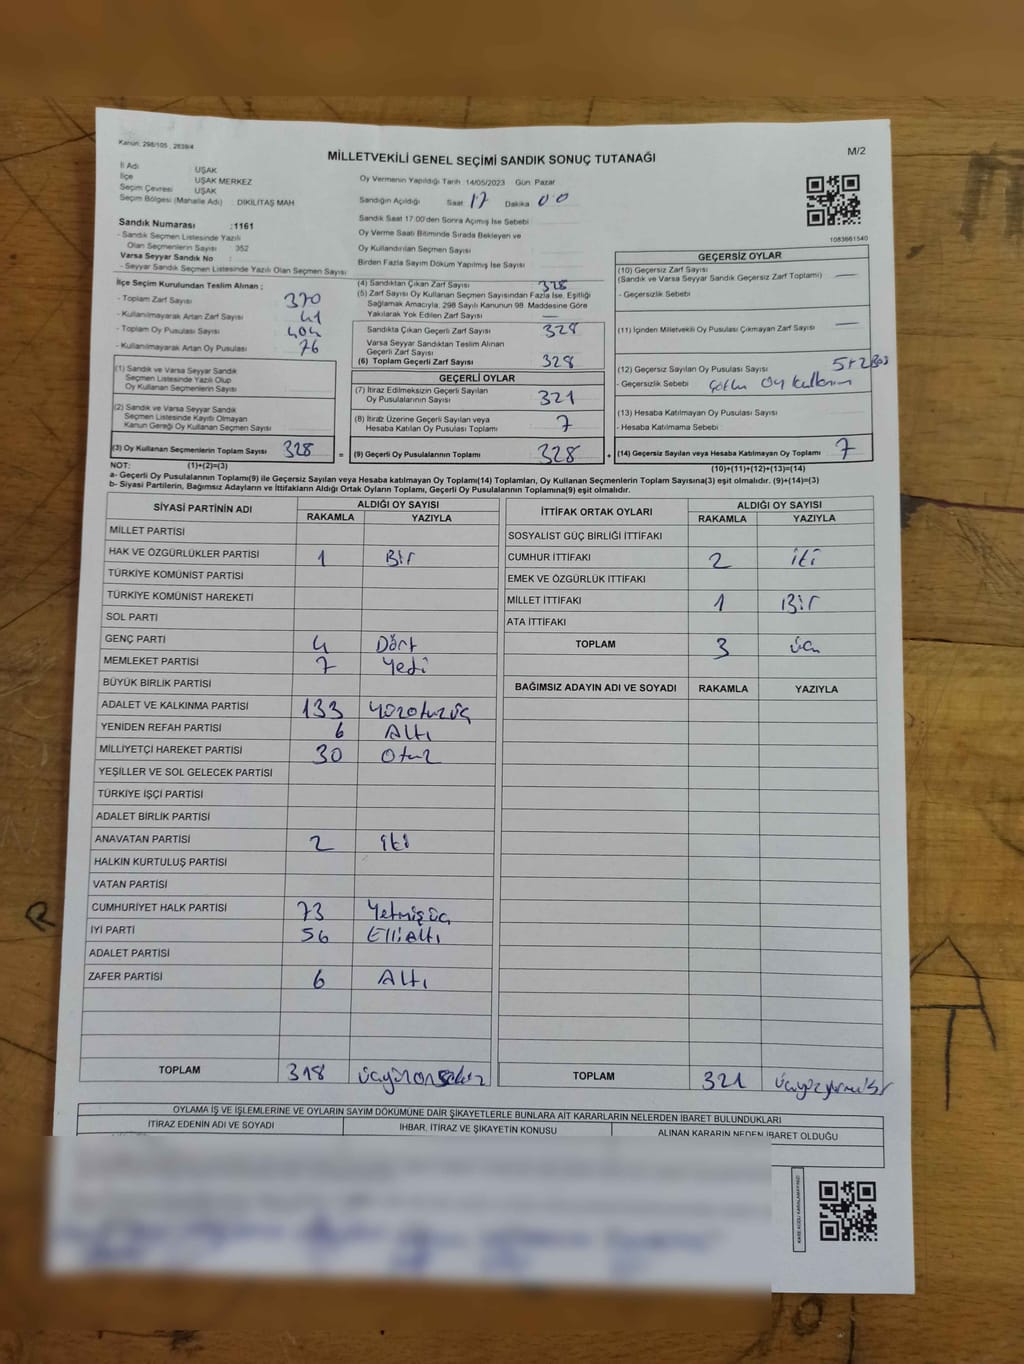 Kanun: 298/105, 2839/4
MİLLETVEKİLİ GENEL SEÇİMİ SANDIK SONUÇ TUTANAĞI
M/2
İl Adı UŞAK
İlçe UŞAK MERKEZ
Seçim Çevresi UŞAK
Seçim Bölgesi (Mahalle Adı) : DİKİLİTAŞ MAH
Sandık Numarası :1161
- Sandık Seçmen Listesinde Yazılı
Olan Seçmenlerin Sayısı : 352
Varsa Seyyar Sandık No :
- Seyyar Sandık Seçmen Listesinde Yazılı Olan Seçmen Sayısı
Oy Vermenin Yapıldığı Tarih :14/05/2023 Gün Pazar
Sandığın Açıldığı Saat 17 Dakika 00
Sandık Saat 17:00'den Sonra Açılmış İse Sebebi
Oy Verme Saati Bitiminde Sırada Bekleyen ve
Oy Kullandırılan Seçmen Sayısı
Birden Fazla Sayım Döküm Yapılmış İse Sayısı
1083661540
İlçe Seçim Kurulundan Teslim Alınan ;
- Toplam Zarf Sayısı 370
- Kullanılmayarak Artan Zarf Sayısı 41
- Toplam Oy Pusulası Sayısı 404
- Kullanılmayarak Artan Oy Pusulası 76
(1) Sandık ve Varsa Seyyar Sandık
Seçmen Listesinde Yazılı Olup
Oy Kullanan Seçmenlerin Sayısı
(2) Sandık ve Varsa Seyyar Sandık
Seçmen Listesinde Kayıtlı Olmayan
Kanun Gereği Oy Kullanan Seçmen Sayısı
(3) Oy Kullanan Seçmenlerin Toplam Sayısı 328
(4) Sandıktan Çıkan Zarf Sayısı 328
(5) Zarf Sayısı Oy Kullanan Seçmen Sayısından Fazla İse, Eşitliği
Sağlamak Amacıyla; 298 Sayılı Kanunun 98. Maddesine Göre
Yakılarak Yok Edilen Zarf Sayısı —
Sandıkta Çıkan Geçerli Zarf Sayısı 328
Varsa Seyyar Sandıktan Teslim Alınan
Geçerli Zarf Sayısı
(6) Toplam Geçerli Zarf Sayısı 328
GEÇERLİ OYLAR
(7) İtiraz Edilmeksizin Geçerli Sayılan
Oy Pusulalarının Sayısı 321
(8) İtiraz Üzerine Geçerli Sayılan veya
Hesaba Katılan Oy Pusulası Toplamı 7
= (9) Geçerli Oy Pusulalarının Toplamı 328
GEÇERSİZ OYLAR
(10) Geçersiz Zarf Sayısı
(Sandık ve Varsa Seyyar Sandık Geçersiz Zarf Toplamı) —
- Geçersizlik Sebebi
(11) İçinden Milletvekili Oy Pusulası Çıkmayan Zarf Sayısı —
(12) Geçersiz Sayılan Oy Pusulası Sayısı 5+2
- Geçersizlik Sebebi
(13) Hesaba Katılmayan Oy Pusulası Sayısı
- Hesaba Katılmama Sebebi
+ (14) Geçersiz Sayılan veya Hesaba Katılmayan Oy Toplamı 7
NOT: (1)+(2)=(3)
(10)+(11)+(12)+(13)=(14)
a- Geçerli Oy Pusulalarının Toplamı(9) ile Geçersiz Sayılan veya Hesaba katılmayan Oy Toplamı(14) Toplamları, Oy Kullanan Seçmenlerin Toplam Sayısına(3) eşit olmalıdır. (9)+(14)=(3)
b- Siyasi Partilerin, Bağımsız Adayların ve İttifakların Aldığı Ortak Oyların Toplamı, Geçerli Oy Pusulalarının Toplamına(9) eşit olmalıdır.
SİYASİ PARTİNİN ADI ALDIĞI OY SAYISI
RAKAMLA YAZIYLA
MİLLET PARTİSİ
HAK VE ÖZGÜRLÜKLER PARTİSİ 1 Bir
TÜRKİYE KOMÜNİST PARTİSİ
TÜRKİYE KOMÜNİST HAREKETİ
SOL PARTİ
GENÇ PARTİ 4 Dört
MEMLEKET PARTİSİ 7 Yedi
BÜYÜK BİRLİK PARTİSİ
ADALET VE KALKINMA PARTİSİ 133 Yüzotuzüç
YENİDEN REFAH PARTİSİ 6 Altı
MİLLİYETÇİ HAREKET PARTİSİ 30 Otuz
YEŞİLLER VE SOL GELECEK PARTİSİ
TÜRKİYE İŞÇİ PARTİSİ
ADALET BİRLİK PARTİSİ
ANAVATAN PARTİSİ 2 iki
HALKIN KURTULUŞ PARTİSİ
VATAN PARTİSİ
CUMHURİYET HALK PARTİSİ 73 Yetmişüç
İYİ PARTİ 56 Ellialtı
ADALET PARTİSİ
ZAFER PARTİSİ 6 Altı
TOPLAM 318 üçyüzonsekiz
İTTİFAK ORTAK OYLARI ALDIĞI OY SAYISI
RAKAMLA YAZIYLA
SOSYALİST GÜÇ BİRLİĞİ İTTİFAKI
CUMHUR İTTİFAKI 2 iki
EMEK VE ÖZGÜRLÜK İTTİFAKI
MİLLET İTTİFAKI 1 Bir
ATA İTTİFAKI
TOPLAM 3 üç
BAĞIMSIZ ADAYIN ADI VE SOYADI RAKAMLA YAZIYLA
TOPLAM 321 üçyüzyirmibir
OYLAMA İŞ VE İŞLEMLERİNE VE OYLARIN SAYIM DÖKÜMÜNE DAİR ŞİKAYETLERLE BUNLARA AİT KARARLARIN NELERDEN İBARET BULUNDUKLARI
İTİRAZ EDENİN ADI VE SOYADI İHBAR, İTİRAZ VE ŞİKAYETİN KONUSU ALINAN KARARIN NEDEN İBARET OLDUĞU